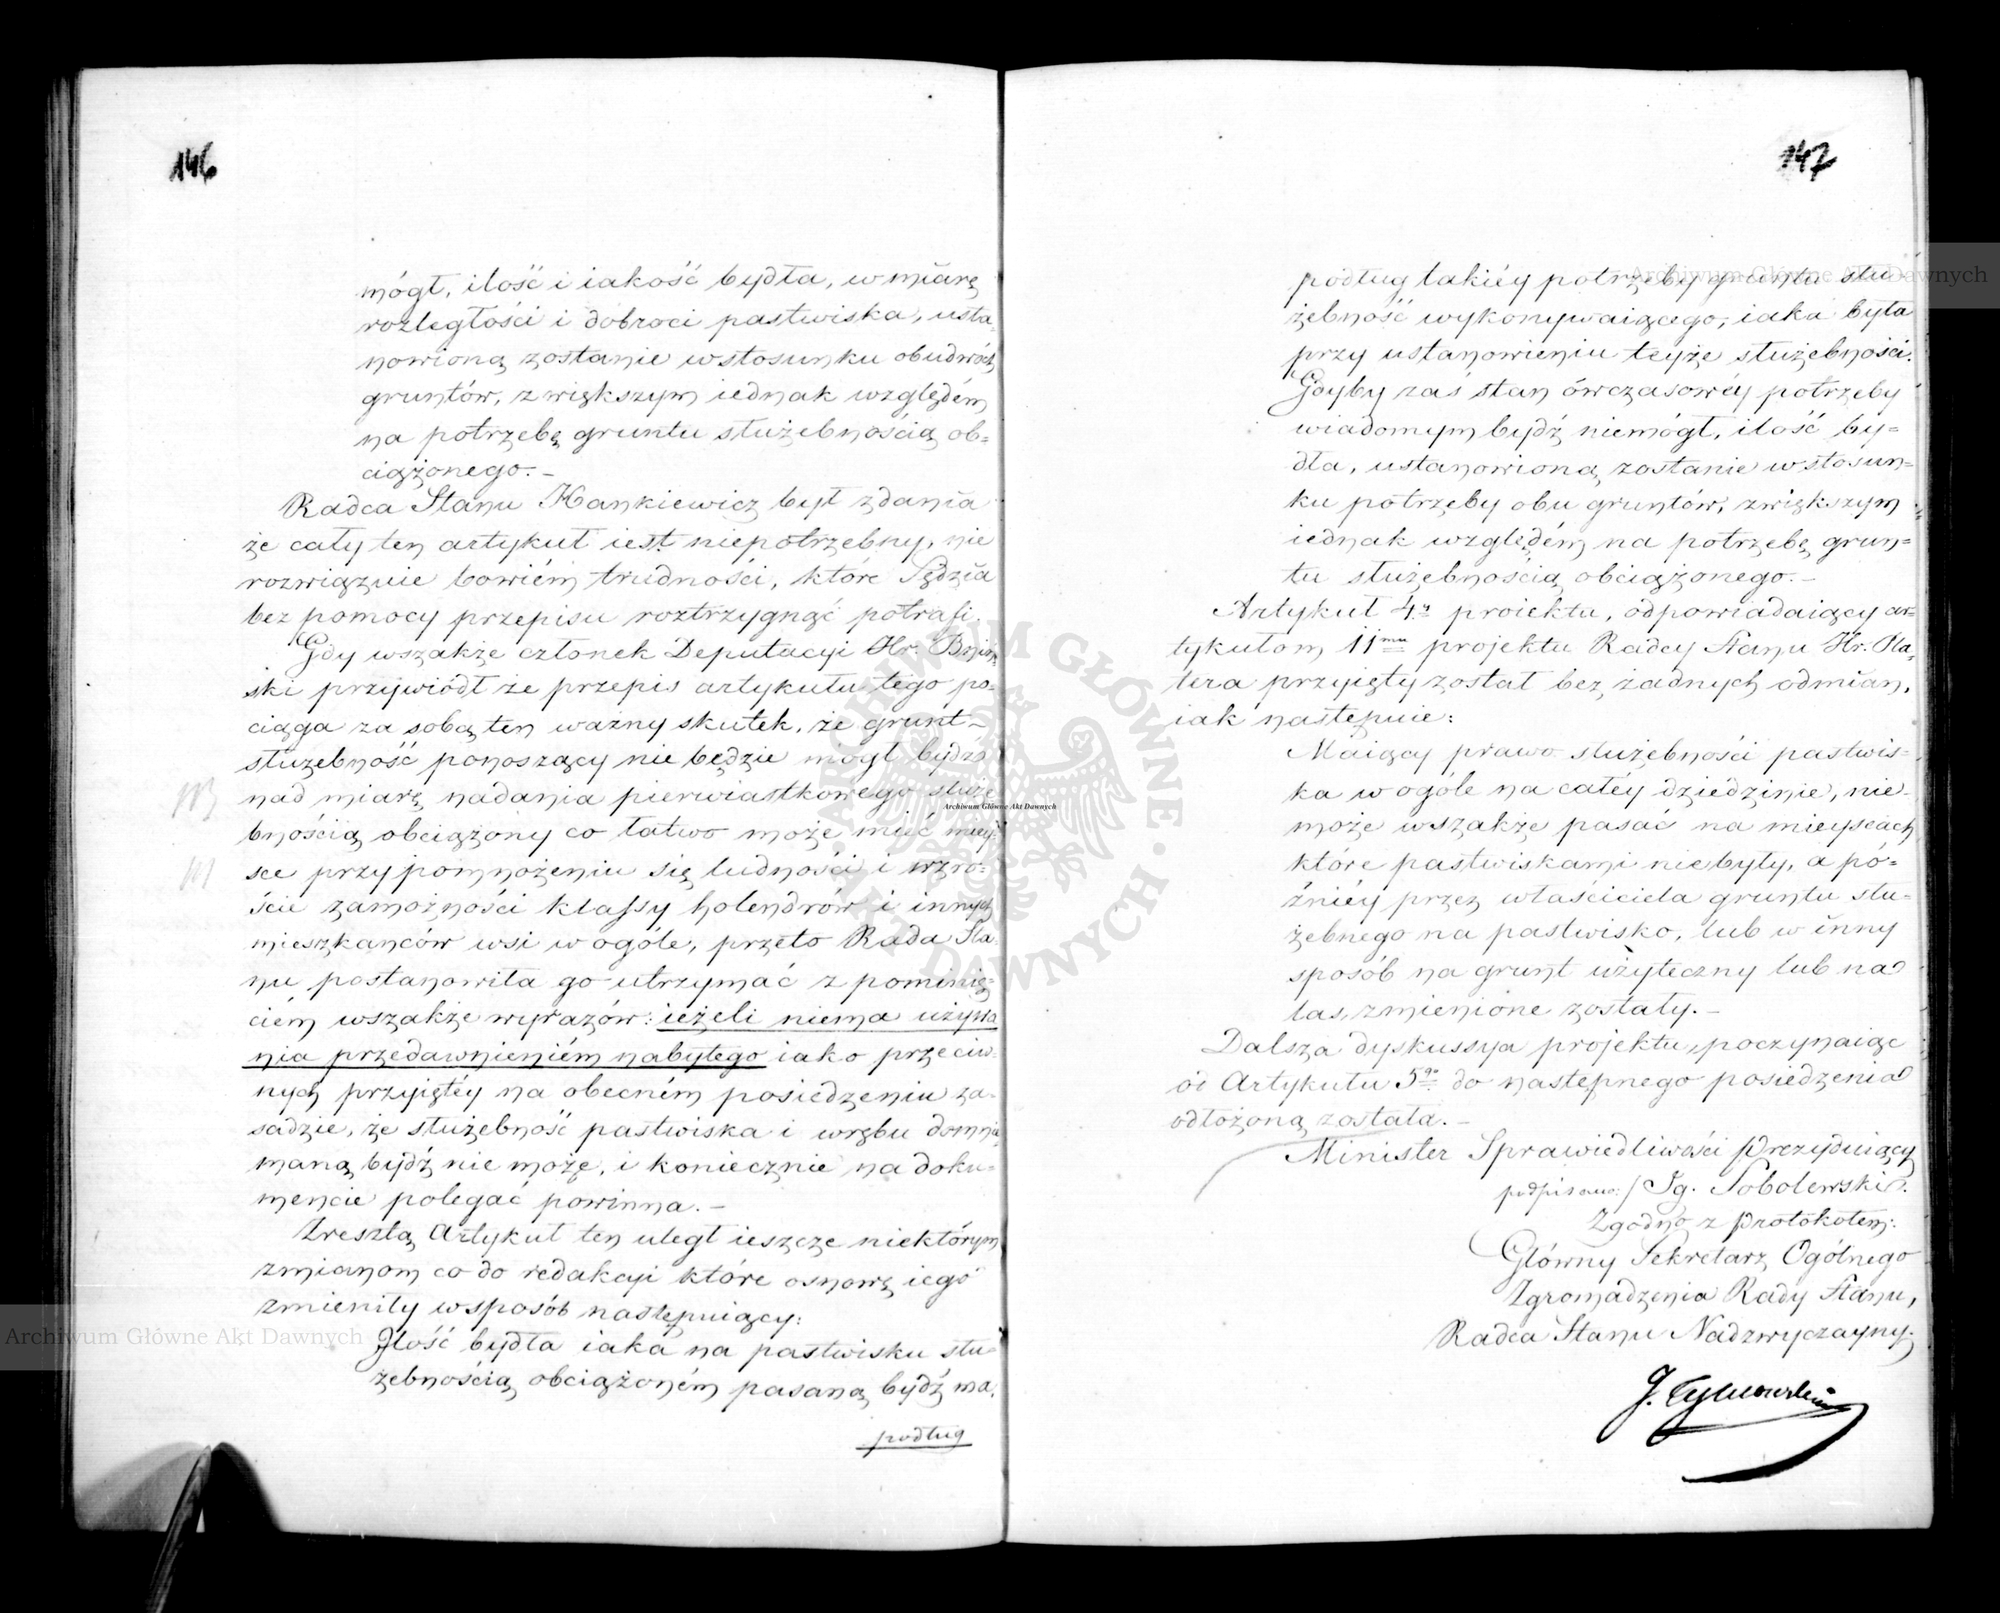 146
mógł, ilość i iakość bydła, w miarę
rozległości i dobroci pastwiska, usta-
nowioną zostanie w stosunku obudwóch
gruntów, z większym iednak względem
na potrzebę gruntu służebnością ob-
ciążonego. –
Radca Stanu Hankiewicz był zdania
że cały ten artykuł iest niepotrzebny, nie
rozwiązuie bowiém trudności, które Sędzia
bez pomocy przepisu roztrzygnąć potrafi.
Gdy wszakże członek Deputacyi Hr.
ski przywiódł że przepis artykułu tego po-
ciąga za sobą ten ważny skutek, że grunt
służebność ponoszący nie będzie mógł bydź
nad miarę nadania pierwiastkowego służe
bnością obciążony co łatwo może mieć miey-
sce przy pomnożeniu się ludności i wzro-
ście zamożności klassy holendrów i innych
mieszkańców wsi w ogóle, przeto Rada Sta-
nu postanowiła go utrzymać z pominię-
ciém wszakże wyrazów: ieżeli niema używa
nia przedawnieniém nabytego iako przeciw-
nych przyiętéy na obecném posiedzeniu za-
sadzie, że służebność pastwiska i wrębu domnie
maną bydź nie może, i koniecznie na doku-
mencie polegać powinna. –
Zresztą Artykuł ten uległ ieszcze niektórym
zmianom co do redakcyi które osnowę iego
zmieniły w sposób następuiący:
Ilość bydła iaka na pastwisku słu-
żebnością obciążoném pasaną bydź ma,
podług
147
podług takiéy potrzeby gruntu słu-
żebność wykonywaiącego, iaka była
przy ustanowieniu teyże służebności.
Gdyby zas stan ówczasowéy potrzeby
wiadomym bydź niemógł, ilość by-
dła, ustanowioną zostanie w stosun-
ku potrzeby obu gruntów, z większym
iednak względém na potrzebę grun-
tu służebnością obciążonego. –
Artykuł 4y proiektu, odpowiadaiący ar-
tykułom 11mu projektu Radcy Stanu Hr. Pla-
tera przyięty został bez żadnych odmian,
iak następuie:
Maiący prawo służebności pastwis-
ka w ogóle na całéy dziedzinie, nie-
może wszakże pasać na mieyscach
które pastwiskami niebyły, a pó-
źniéy przez właściciela gruntu słu-
żebnego na pastwisko, lub w inny
sposób na grunt użyteczny lub na
las, zmienione zostały. –
Dalsza dyskussya projektu, poczynaiąc
od Artykułu 5go do następnego posiedzenia
odłożoną została. –
Minister Sprawiedliwości Prezyduiący
podpisano:/ Ig. Sobolewski.
Zgodno z Protokołem:
Główny Sekretarz Ogólnego
Zgromadzenia Rady Stanu,
Radca Stanu Nadzwyczayny.
J. Tymowski
Archiwum Główne Akt Dawnych
Archiwum Główne Akt Dawnych
Archiwum Główne Akt Dawnych
ARCHIWUM GŁÓWNE · AKT DAWNYCH ·